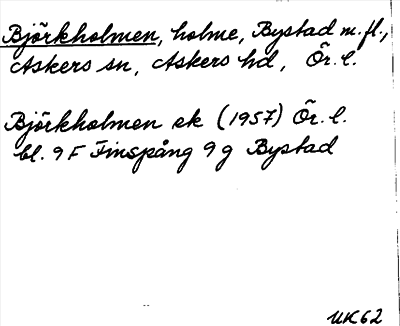 Björkholmen, holme, Bystad m.fl.,
Askers sn, Askers hd, Ör. l.
Björkholmen ek (1957) Ör. l.
bl. 9 F Finspång 9 g Bystad
UK62